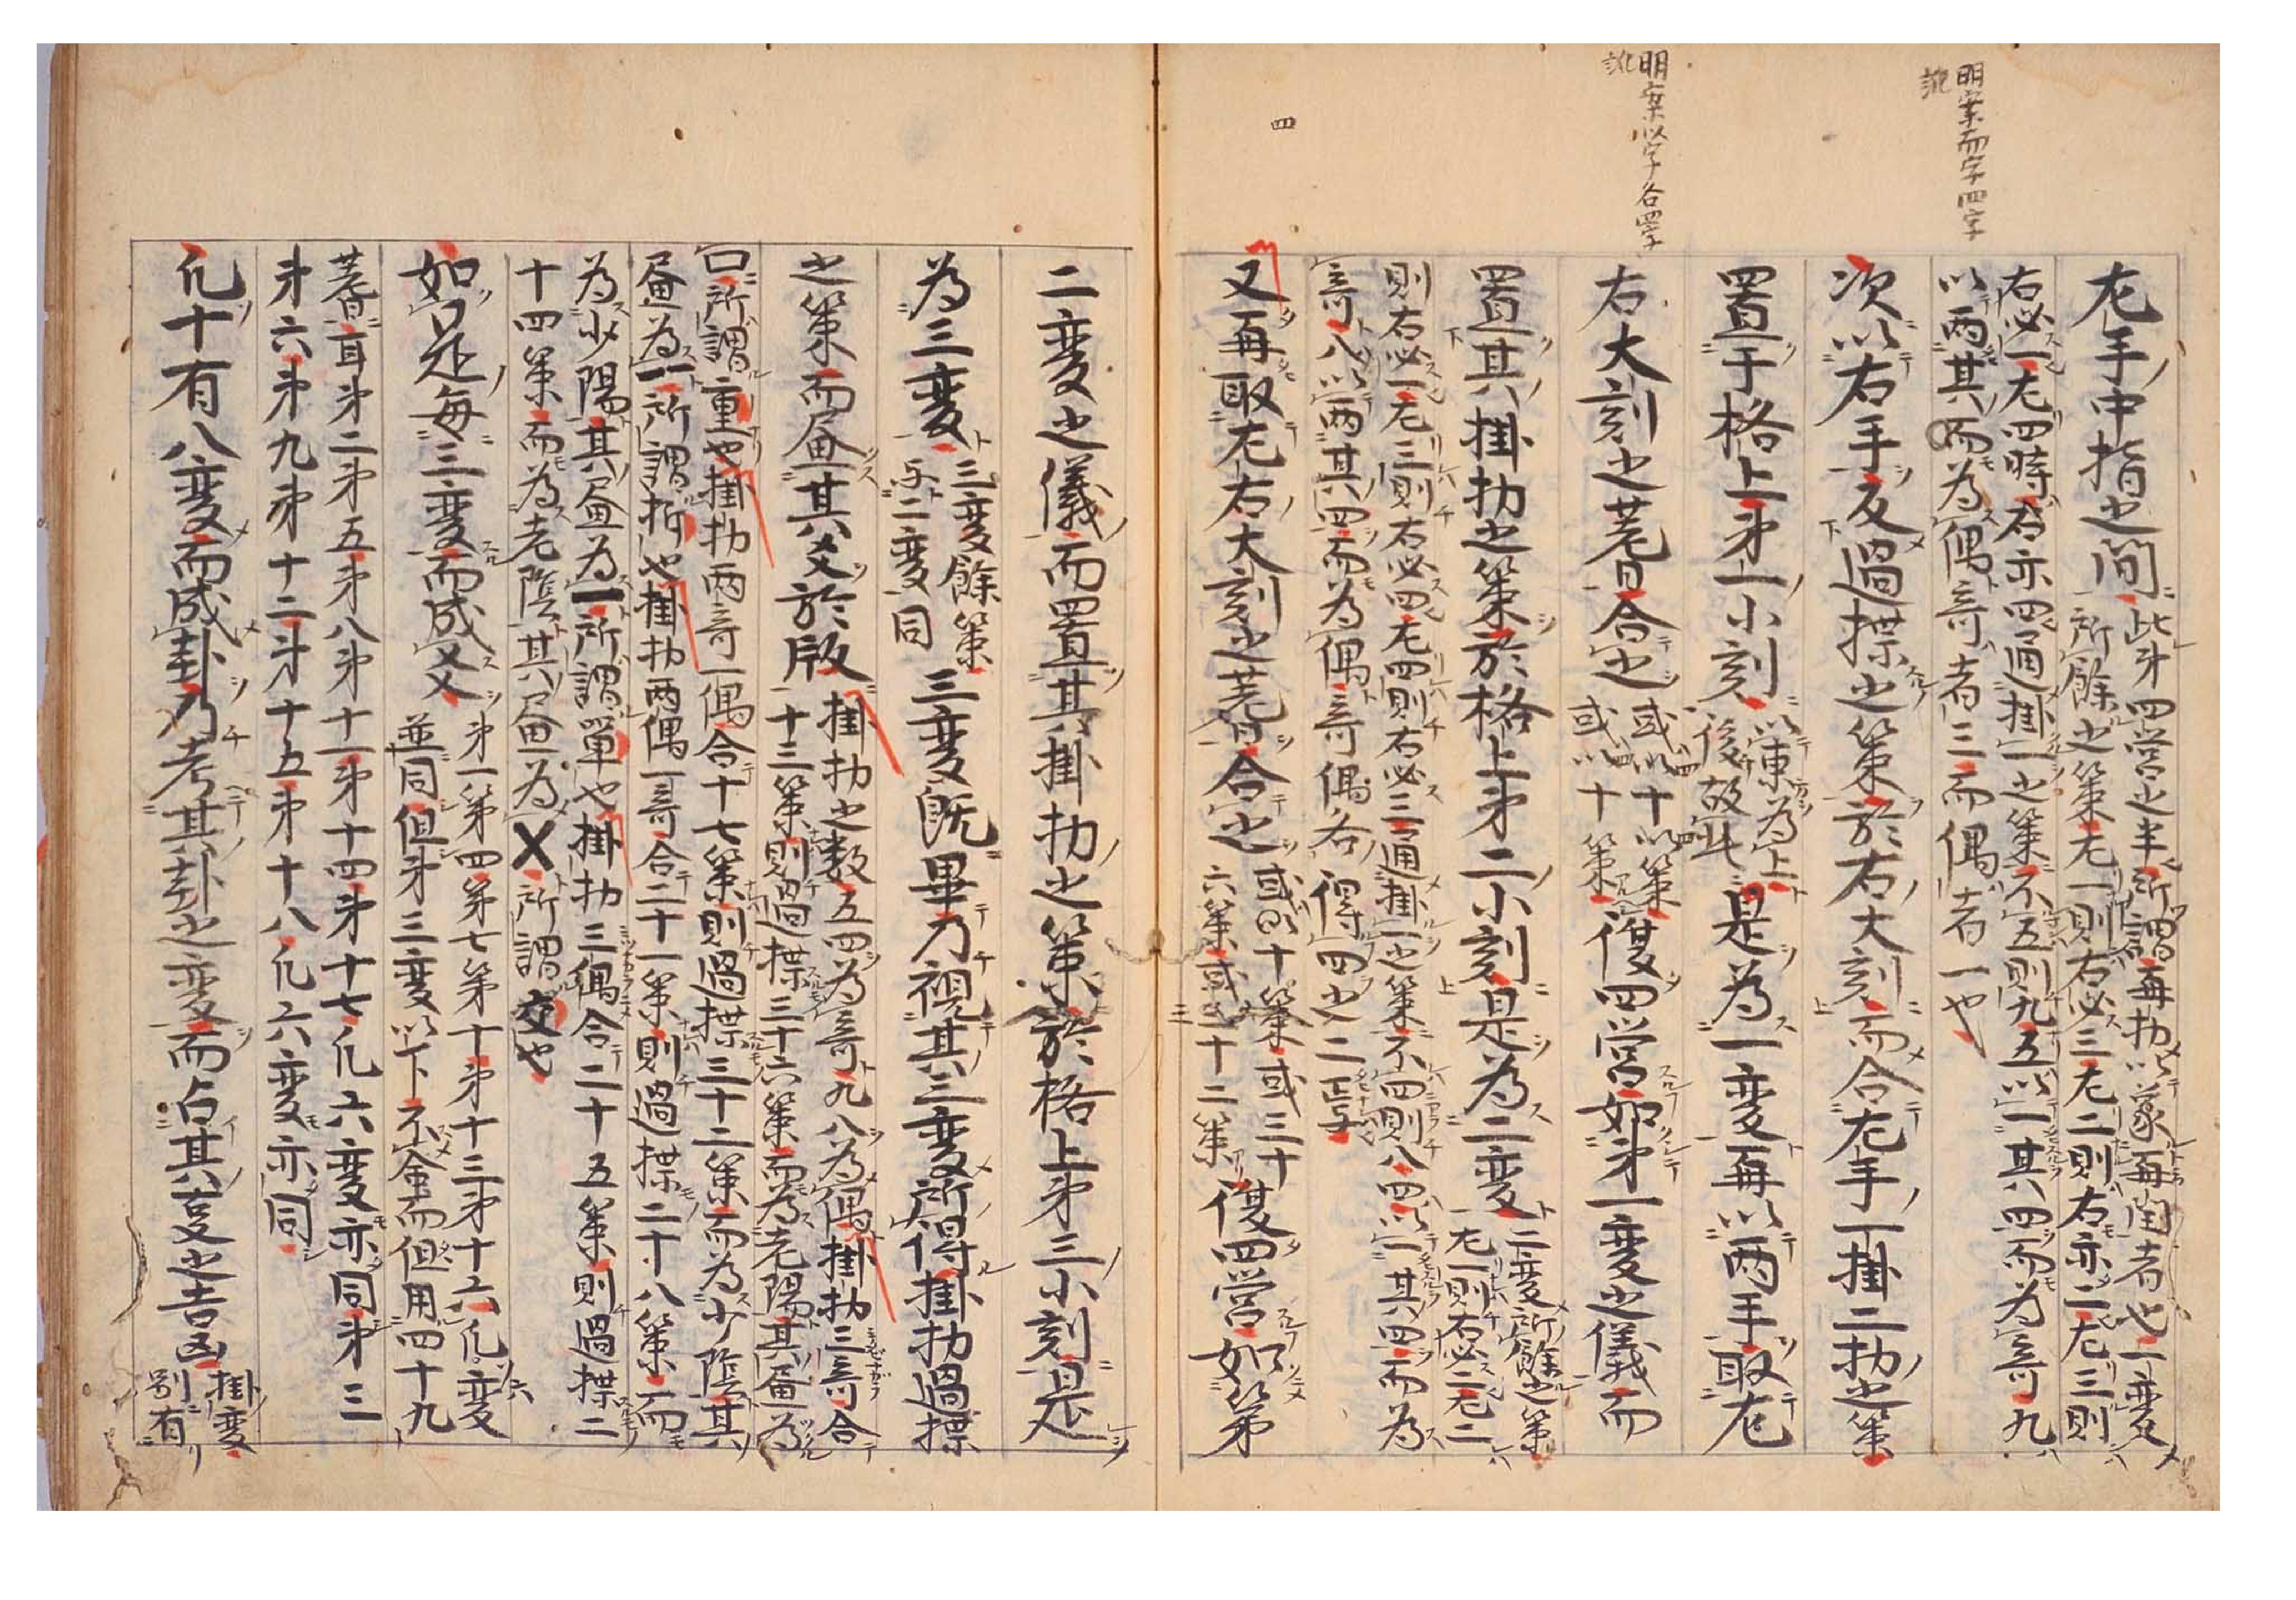 明案而字四字
訛
明案以字各罡字
訛
四
左手中指之間
此第四営之半所謂再扐以象再閏者也一変
所餘之策左一則右必三左二則右亦二左三則
右必一左四時右亦四通掛一之策不五則九五以一其四而為竒九
以兩其而為偶竒者三而偶者一也
次以右手反過揲之策於右大刻而合左手一掛二扐之策
置于格上第一小刻
以東為上
後放此
是為一変再以兩手取左
右大刻之蓍合之
或四十四策
或四十策
復四営如第一変之儀而
置其掛扐之策於格上第二小刻是為二変
二変所餘之策
左一則右必二左二
則右必一左三則右必四左四則右必三通掛一之策不四則八四以一其四而為
竒八以兩其四而為偶竒偶各得四之二焉
又再取左右大刻之蓍合之
或四十策或三十
六策或三十二策
復四営如第
二変之儀而置其掛扐之策於格上第三小刻是
為三変
三変餘策
与二変同
三変既畢乃視其三変所得掛扐過揲
之策而畫其爻於版
掛扐之数五四為竒九八為偶掛扐三竒合
十三策則過揲三十六策而為老陽其畫為
口所謂重也掛扐兩竒一偶合十七策則過揲三十二策而為少陰其
畫為一所謂拆也掛扐兩偶一竒合二十一策則過揲二十八策而
為少陽其畫為一所謂單也掛扐三偶合二十五策則過揲二
十四策而為老陰其畫為X所謂交也
如是毎三変而成爻
第一第四第七第十第十三第十六凡変
並同但第三変以下不命而但用四十九
蓍耳第二第五第八第十一第十四第十七凡六変亦同第三
第六第九第十二第十五第十八凡六変亦同
凡十有八変而成卦乃考其卦之変而占其変之吉凶
掛変
別有